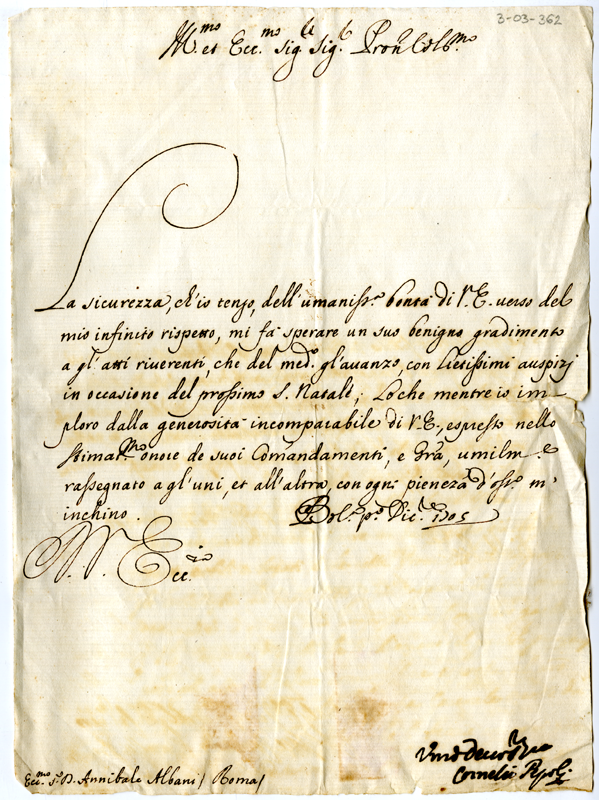 3-03-362
Ill.mo et Ecc.mo Sig.re Sig.r Pron Col.mo
La sicurezza, ch'io tengo, dell'umaniss.a bontà di V.E. verso del
mio infinito rispetto, mi fà sperare un suo benigno gradimento
a gl'atti riverenti, che del med.o gl'avanzo, con lietissimi auspizj
in occasione del prossimo S. Natale; Loche mentre io im-
ploro dalla generosità incomparabile di V.E., espresso nello
stimat.mo onore de suoi Comandamenti, e Grã, umilm.e
rassegnato a gl'uni, et all'altra, con ogni pieneza d'oss.a m'
inchino.
Bol.a p.o Dic.re 1705
Ecc.za
Ecc.mo S. D. Annibale Albani / Roma /
Cornelio Pepoli